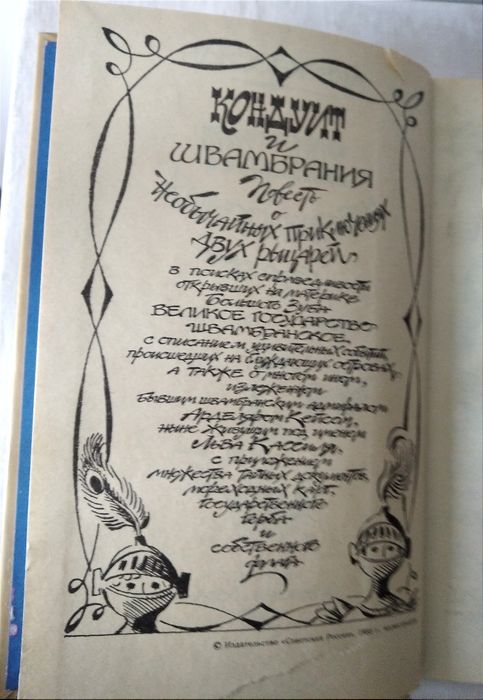 КОНДУИТ
и
ШВАМБРАНИЯ
Повесть
о
необычайных приключениях
двух рыцарей,
в поисках справедливости
открывших на материке
Большого Зуба
ВЕЛИКОЕ ГОСУДАРСТВО
ШВАМБРАНСКОЕ,
с описанием удивительных событий,
происшедших на блуждающих островах,
а также о многом ином,
изложенном
бывшим швамбранским адмиралом
Арделяром Кейсом,
ныне живущим под именем
Льва Кассиля,
с приложением
множества тайных документов,
мореходных карт,
государственного
герба
и
собственного
флага
© Издательство «Советская Россия», 1990 г.